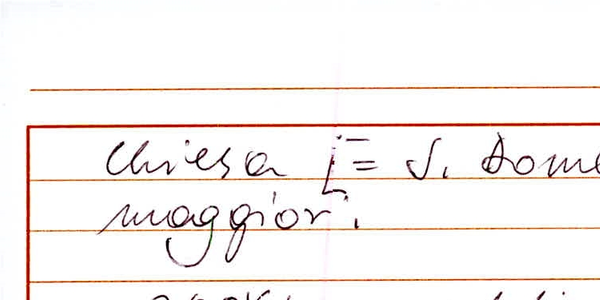 chiesa [= S. Dome
maggior.